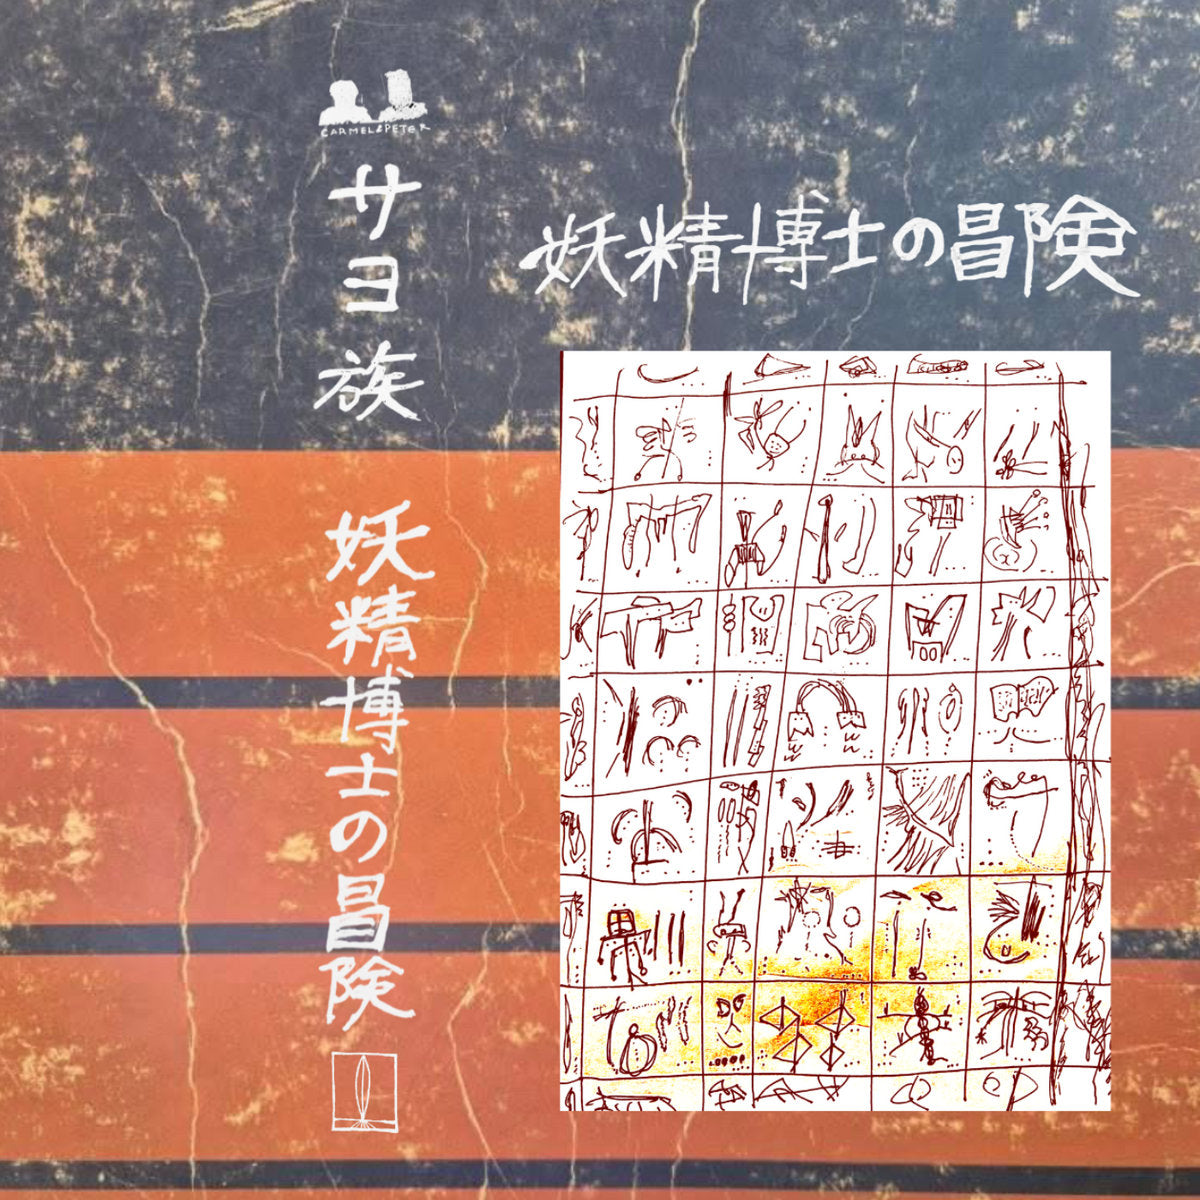 CARMEL&PETER
サヨ族
妖精博士の冒険
妖精博士の冒険